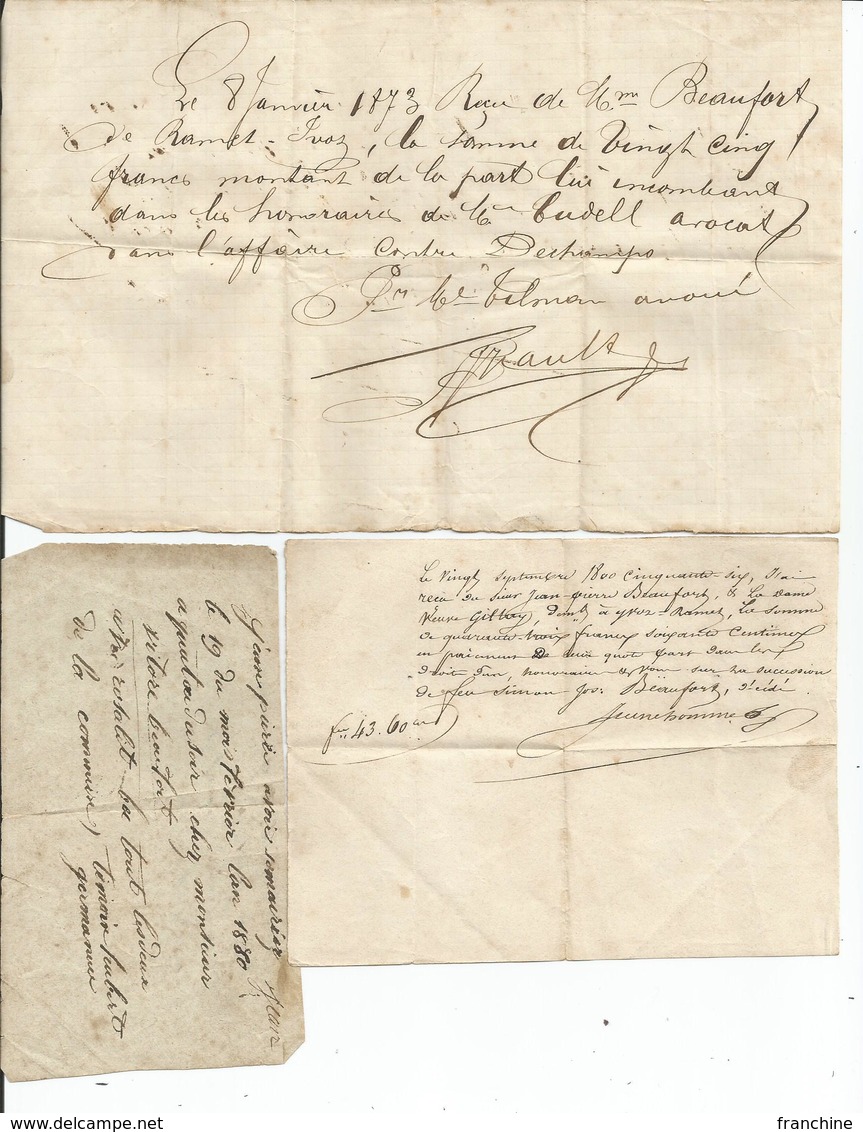 Le 8 Janvier 1873 Reçu de Mme Beaufort
de Ramet-Ivoz, la somme de Vingt cinq
francs montant de la part lui incombant
dans les honoraires de Me avocat
dans l'affaire contre Deschamps
Pr Me Tilman avoué
Le vingt septembre 1800 cinquante-six, J'ai
reçu du sieur Jean-pierre Beaufort, & la dame
veuve Gilkay, à yvoz-Ramet, la somme
de quarante-trois francs soixante centimes
en paiement de leur quote part dans les
droit honoraire sur la succession
de feu Simon Jos: Beaufort, décédé.
Jeunehomme
fr 43.60
le 19 du mois février l'an 1880
du soir chez monsieur
victore beaufort
rosalie tout les deux
de la commune, témoin hubert
germanne
franchine